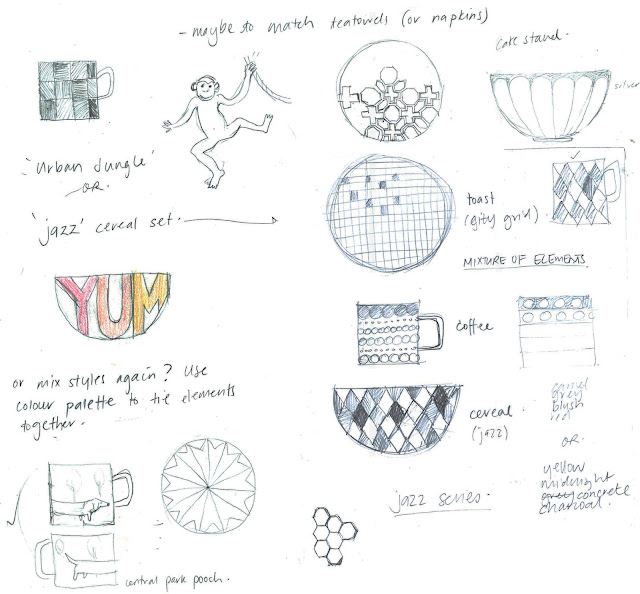 - maybe to match teatowels (or napkins)
cafe stand.
silver
'Urban Jungle'
OR.
'jazz' cereal set.
toast
(city grid)
MIXTURE OF ELEMENTS
YUM
coffee
or mix styles again? Use
colour palette to tie elements
together.
cereal
(jazz)
camel
grey
blush
red
OR.
yellow
midnight
grey concrete
charcoal.
jazz series.
central park pooch.